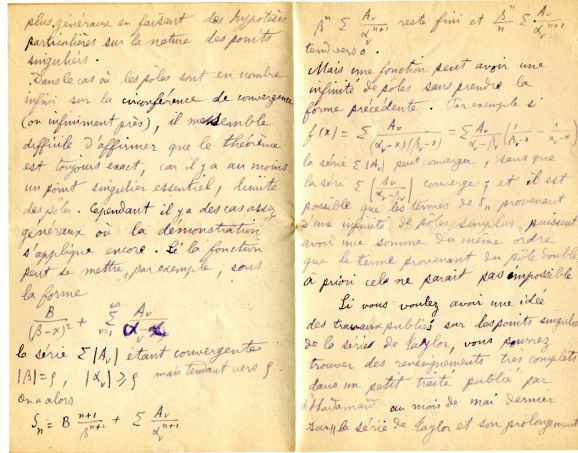 plus généraux en faisant des hypothèses
particulières sur la nature des points
singuliers.
Dans le cas où les pôles sont en nombre
infini sur la circonférence de convergence
(ou infiniment près), il me semble
difficile d'affirmer que le théorème
est toujours exact, car il y a au moins
un point singulier essentiel, limite
des pôles. Cependant il y a des cas assez
généraux où la démonstration
s'applique encore. Si la fonction
peut se mettre, par exemple, sous
la forme
B/(β-x)² + Σ_{ν=1}^{∞} A_ν/(α_ν-x)
la série Σ|A_ν| étant convergente
|β|=ρ, |α_ν| ⩾ ρ mais tendant vers ρ.
On a alors
S_n = B (n+1)/β^{n+1} + Σ A_ν/α_ν^{n+1}
β^n Σ A_ν/α_ν^{n+1} reste fini et β^n/n Σ A_ν/α_ν^{n+1}
tend vers 0.
Mais une fonction peut avoir une
infinité de pôles sans prendre la
forme précédente. Par exemple si
f(x) = Σ A_ν/((α_ν-x)(β_ν-x)) = Σ A_ν/(α_ν-β_ν) (1/(β_ν-x) - 1/(α_ν-x))
la série Σ|A_ν| peut converger, sans que
la série Σ|A_ν/(α_ν-β_ν)| converge; et il est
possible que les termes de S_n provenant
d'une infinité de pôles simples, puissent
avoir une somme du même ordre
que le terme provenant du pôle double
à priori cela ne parait pas impossible
Si vous voulez avoir une idée
des travaux publiés sur les points singuliers
de la série de Taylor, vous pourrez
trouver des renseignements très complets
dans un petit traité publié par
Hadamard au mois de mai dernier
sur "la série de Taylor et son prolongement